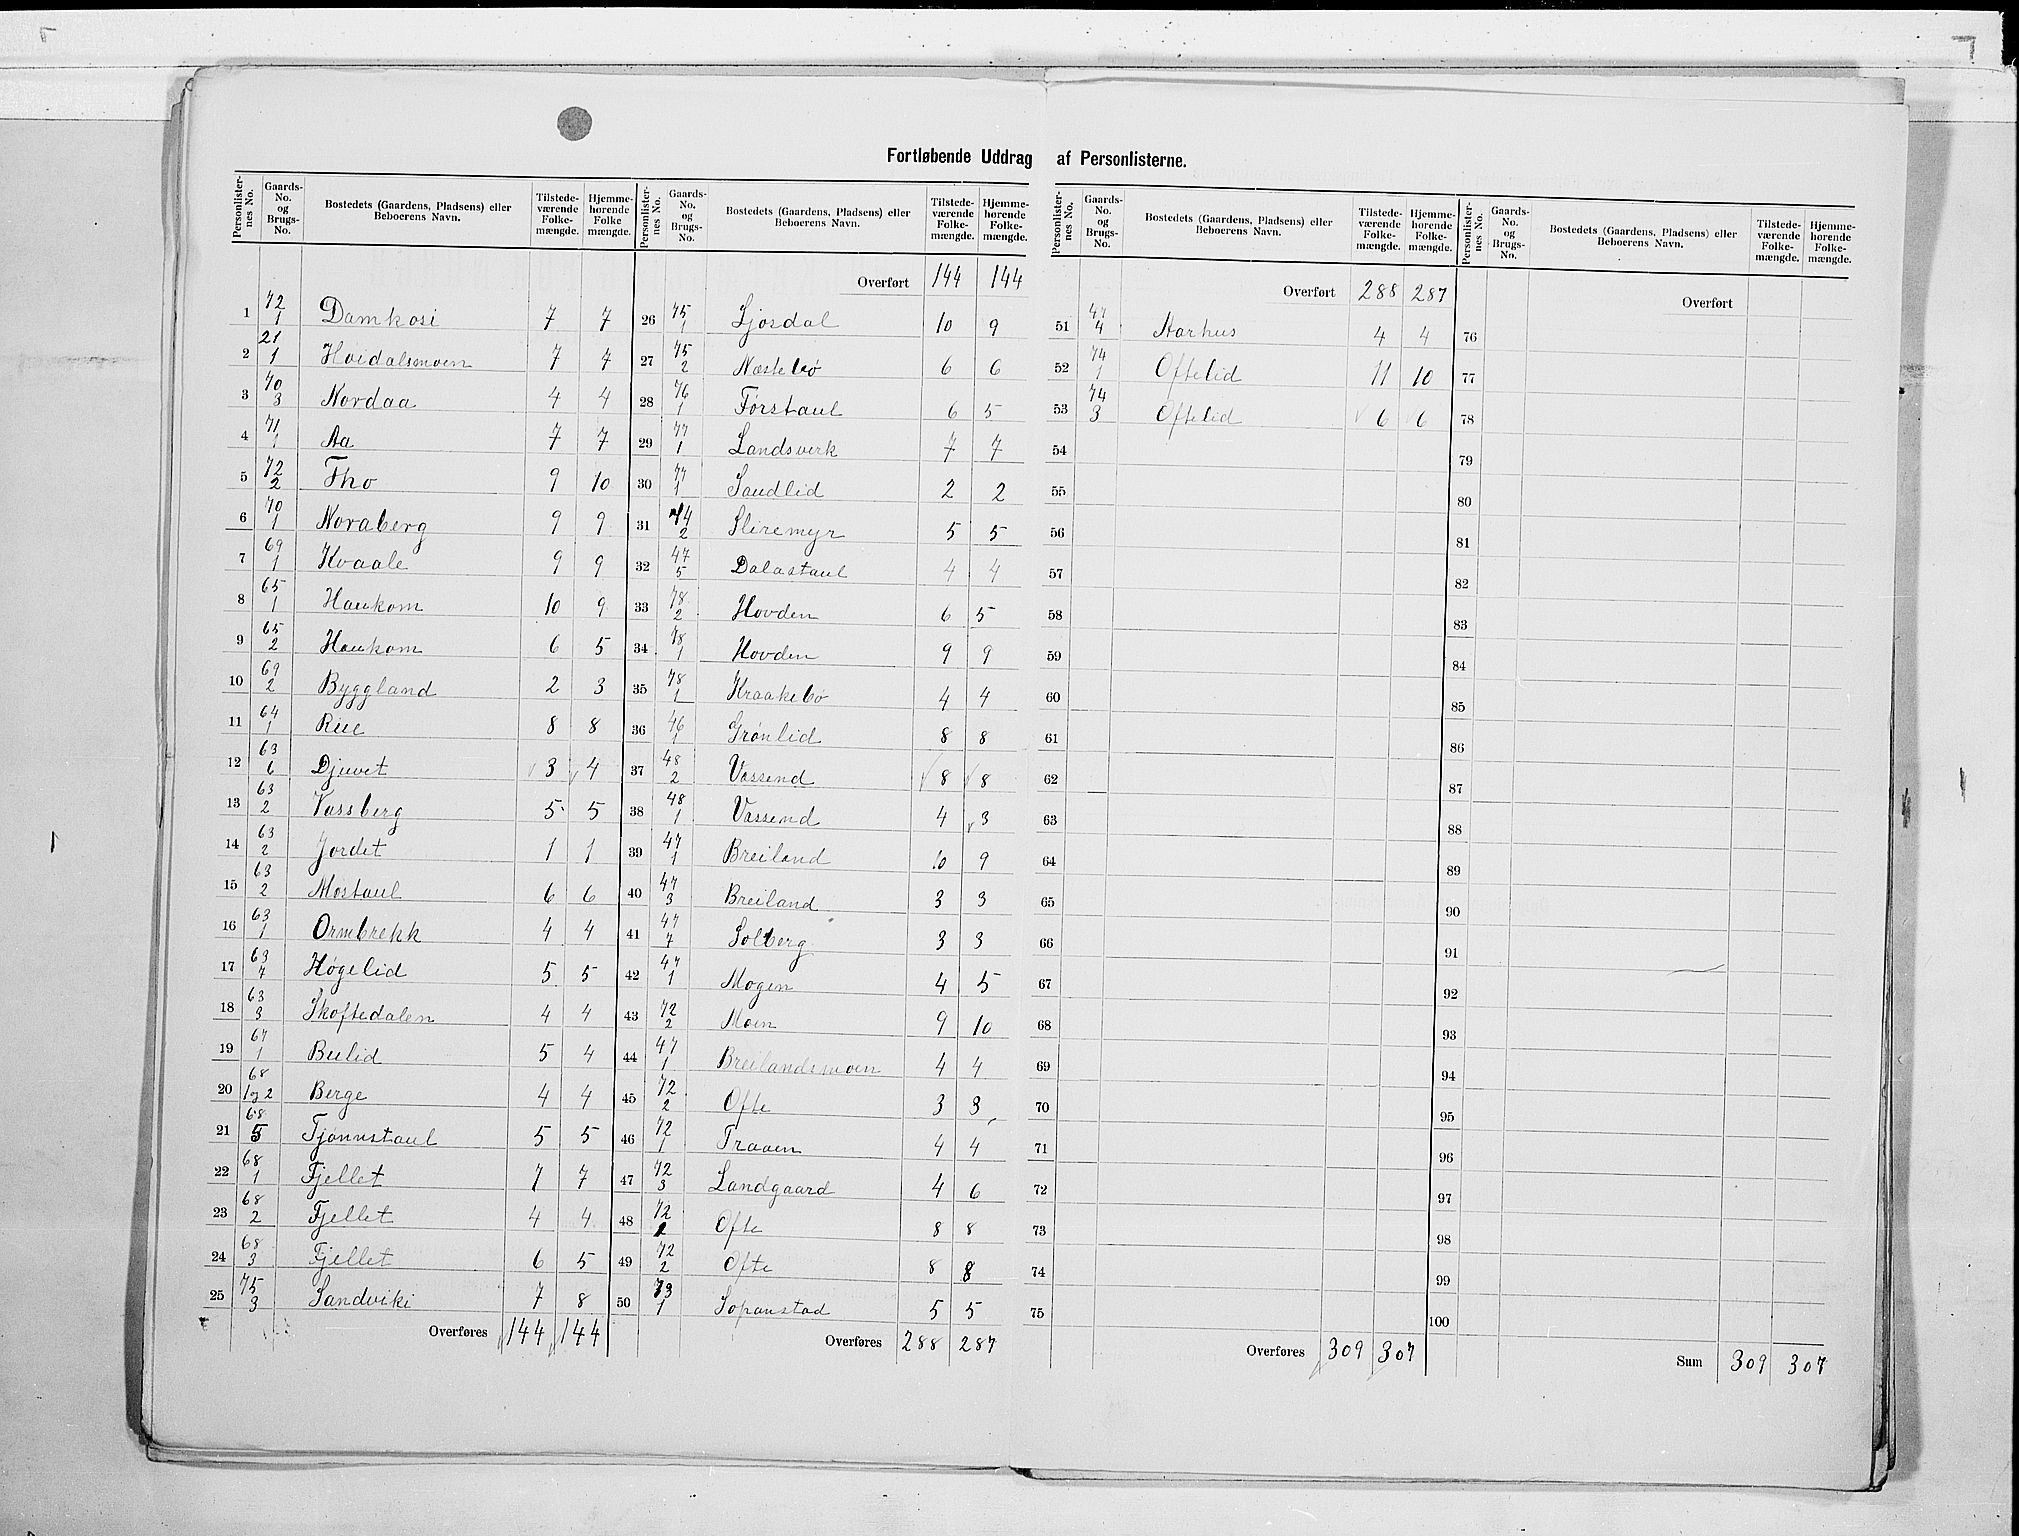 Fortløbende Uddrag af Personlisterne.
Personlisternes No. Gaards-No. og Brugs-No. Bostedets (Gaardens, Pladsens) eller Beboerens Navn. Tilstedeværende Folkemængde. Hjemmehørende Folkemængde.
1 72/1 Damkasi 7 7
2 21/1 Hvidalsmoen 7 7
3 70/3 Nordaa 4 4
4 71/1 Aa 7 7
5 72/2 Tho 9 10
6 70/1 Noraberg 9 9
7 69/1 Kvaale 9 9
8 65/1 Haukom 10 9
9 65/2 Haukom 6 5
10 69/2 Byggland 2 3
11 64/1 Rue 8 8
12 63/6 Djuvet 3 4
13 63/2 Vassberg 5 5
14 63/2 Jordet 1 1
15 63/2 Mostaul 6 6
16 63/1 Ormbrekk 4 4
17 63/7 Høgelid 5 5
18 63/3 Skoftedalen 4 4
19 67/1 Beilid 5 4
20 68/1 og 2 Berge 4 4
21 68/5 Tjønnstaul 5 5
22 68/1 Fjellet 7 7
23 68/2 Fjellet 4 4
24 68/3 Fjellet 6 5
25 75/3 Sandviki 7 8
Overføres 144 144
Personlisternes No. Gaards-No. og Brugs-No. Bostedets (Gaardens, Pladsens) eller Beboerens Navn. Tilstedeværende Folkemængde. Hjemmehørende Folkemængde.
Overført 144 144
26 75/1 Ljosdal 10 9
27 75/2 Næstebø 6 6
28 76/1 Førstaul 6 5
29 77/1 Landsverk 7 7
30 77/1 Sandlid 2 2
31 74/2 Sliremyr 5 5
32 47/5 Dalastaul 4 4
33 78/2 Hovden 6 5
34 78/1 Hovden 9 9
35 78/1 Kraakebø 4 4
36 46/1 Grønlid 8 8
37 48/2 Vassend 8 8
38 48/1 Vassend 4 3
39 47/1 Breiland 10 9
40 47/3 Breiland 3 3
41 47/7 Solberg 3 3
42 47/1 Mogen 4 5
43 72/2 Moen 9 10
44 47/1 Breilandsmoen 4 4
45 72/2 Ofte 3 3
46 72/1 Traaen 4 4
47 72/3 Landgaard 4 6
48 72/1 Ofte 8 8
49 72/2 Ofte 8 8
50 73/1 Sopanstad 5 5
Overføres 288 287
Personlisternes No. Gaards-No. og Brugs-No. Bostedets (Gaardens, Pladsens) eller Beboerens Navn. Tilstedeværende Folkemængde. Hjemmehørende Folkemængde.
Overført 288 287
51 47/4 Aarhus 4 4
52 74/1 Oftelid 11 10
53 74/3 Oftelid 6 6
54
55
56
57
58
59
60
61
62
63
64
65
66
67
68
69
70
71
72
73
74
75
Overføres 309 307
Personlisternes No. Gaards-No. og Brugs-No. Bostedets (Gaardens, Pladsens) eller Beboerens Navn. Tilstedeværende Folkemængde. Hjemmehørende Folkemængde.
Overført
76
77
78
79
80
81
82
83
84
85
86
87
88
89
90
91
92
93
94
95
96
97
98
99
100
Sum 309 307